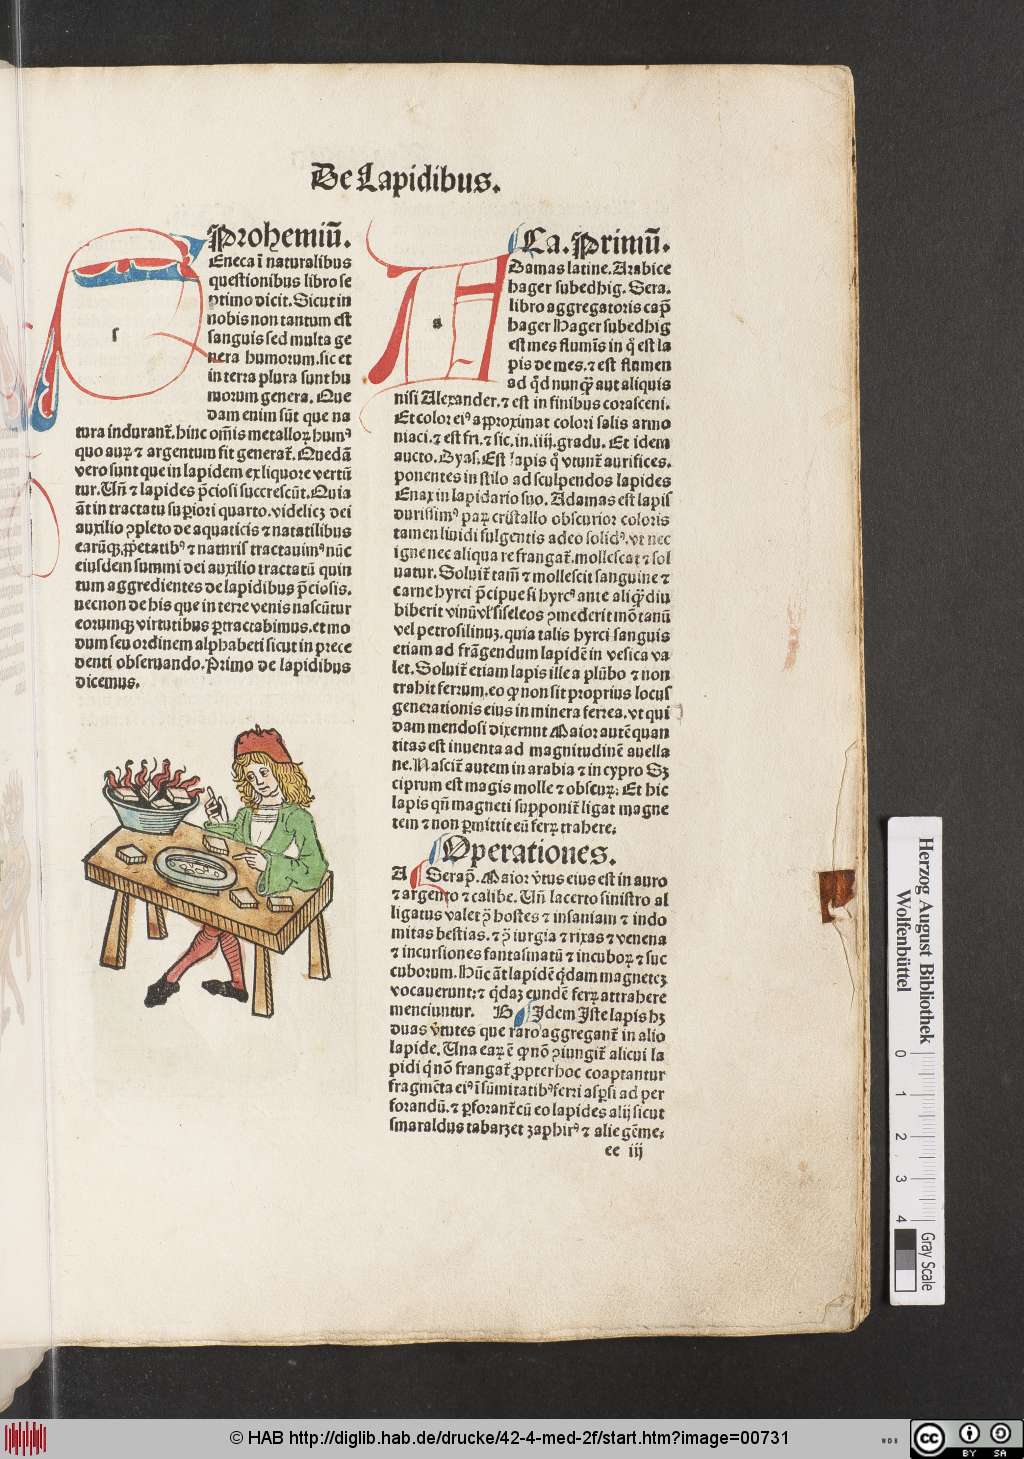 De Lapidibus.
Prohemiū.
s
Eneca ī naturalibus
questionibus libro se
ptimo dicit. Sicut in
nobis non tantum est
sanguis sed multa ge
nera humorum. sic et
in terra plura sunt hu
morum genera. Que
dam enim sūt que na
tura indurant᷑. hinc om̄is metalloꝝ humꝰ
quo auꝝ ⁊ argentum fit generat᷑. Quedā
vero sunt que in lapidem ex liquore vertū
tur. Vn̄ ⁊ lapides p̄ciosi succrescūt. Quia
āt in tractatu supiori quarto. videlicꝫ dei
auxilio ꝯpleto de aquaticis ⁊ natatilibus
earūqꝫ ꝓpetatibꝰ ⁊ naturis tractauimꝰ nūc
eiusdem summi dei auxilio tractatū quin
tum aggredientes de lapidibus p̄ciosis.
necnon de his que in terre venis nascūtur
eorumqꝫ virtutibus ꝑtractabimus. et mo
dum seu ordinem alphabeti sicut in prece
denti obseruando. Primo de lapidibus
dicemus.
Ca. Primū.
a
Damas latine. Arabice
hager subedhig. Sera.
libro aggregatoris cap̄
hager Hager subedhig
est mes flumīs in q̇ est la
pis de mes. ⁊ est flumen
ad q̇d nunqꝫ aut aliquis
nisi Alexander. ⁊ est in finibus corasceni.
Et color eiꝰ aꝓximat colori salis armo
niaci. ⁊ est fri. ⁊ sic. in .iiij. gradu. Et idem
aucto. Dyas. Est lapis q̇ vtunt᷑ aurifices.
ponentes in stilo ad sculpendos lapides
Enax in lapidario suo. Adamas est lapis
durissimꝰ paꝝ cristallo obscurior coloris
tamen liuidi fulgentis adeo solidꝰ. vt nec
igne nec aliqua re frangat᷑. mollescat ⁊ sol
uatur. Soluit᷑ tam̄ ⁊ mollescit sanguine ⁊
carne hyrci p̄cipue si hyrcꝰ ante aliqꝫdiu
biberit vinū vl̓ siseleos ꝯmederit mōtanū
vel petrosilinuꝫ. quia talis hyrci sanguis
etiam ad frāgendum lapidē in vesica va
let. Soluit᷑ etiam lapis ille a plūbo ⁊ non
trahit ferrum. eo ꝙ non sit proprius locus
generationis eius in minera ferrea. vt qui
dam mendosi dixerunt Maior autē quan
titas est inuenta ad magnitudinē auella
ne. Nascit᷑ autem in arabia ⁊ in cypro Sꝫ
ciprum est magis molle ⁊ obscuꝝ. Et hic
lapis qn̄ magneti supponit᷑ ligat magne
tem ⁊ non ꝑmittit eū ferꝝ trahere.
Operationes.
A Serap̄. Maior v̓tus eius est in auro
⁊ argento ⁊ calibe. Vn̄ lacerto sinistro al
ligatus valet ꝯ̄ hostes ⁊ insaniam ⁊ indo
mitas bestias. ⁊ ꝯ̄ iurgia ⁊ rixas ⁊ venena
⁊ incursiones fantasmatū ⁊ incuboꝝ ⁊ suc
cuborum. Hūc āt lapidē q̇dam magnetēꝫ
vocauerunt: ⁊ q̇daꝫ eundē ferꝝ attrahere
menciuntur. B Idem Iste lapis hꝫ
duas v̓tutes que raro aggregant᷑ in alio
lapide. Una eaꝝ ē ꝙ nō ꝯiungit᷑ alicui la
pidi q̇ nō frangat᷑. ꝓpter hoc coaptantur
fragmēta eiꝰ ī sūmitatibꝰ ferri asp̄si ad per
forandū. ⁊ ꝑforant᷑ cū eo lapides alij sicut
smaraldus tabarzet zaphirꝰ ⁊ alie gēme:
ee iij
Herzog August Bibliothek
Wolfenbüttel
0 1 2 3 4
Gray Scale
© HAB http://diglib.hab.de/drucke/42-4-med-2f/start.htm?image=00731
WDB
cc BY SA